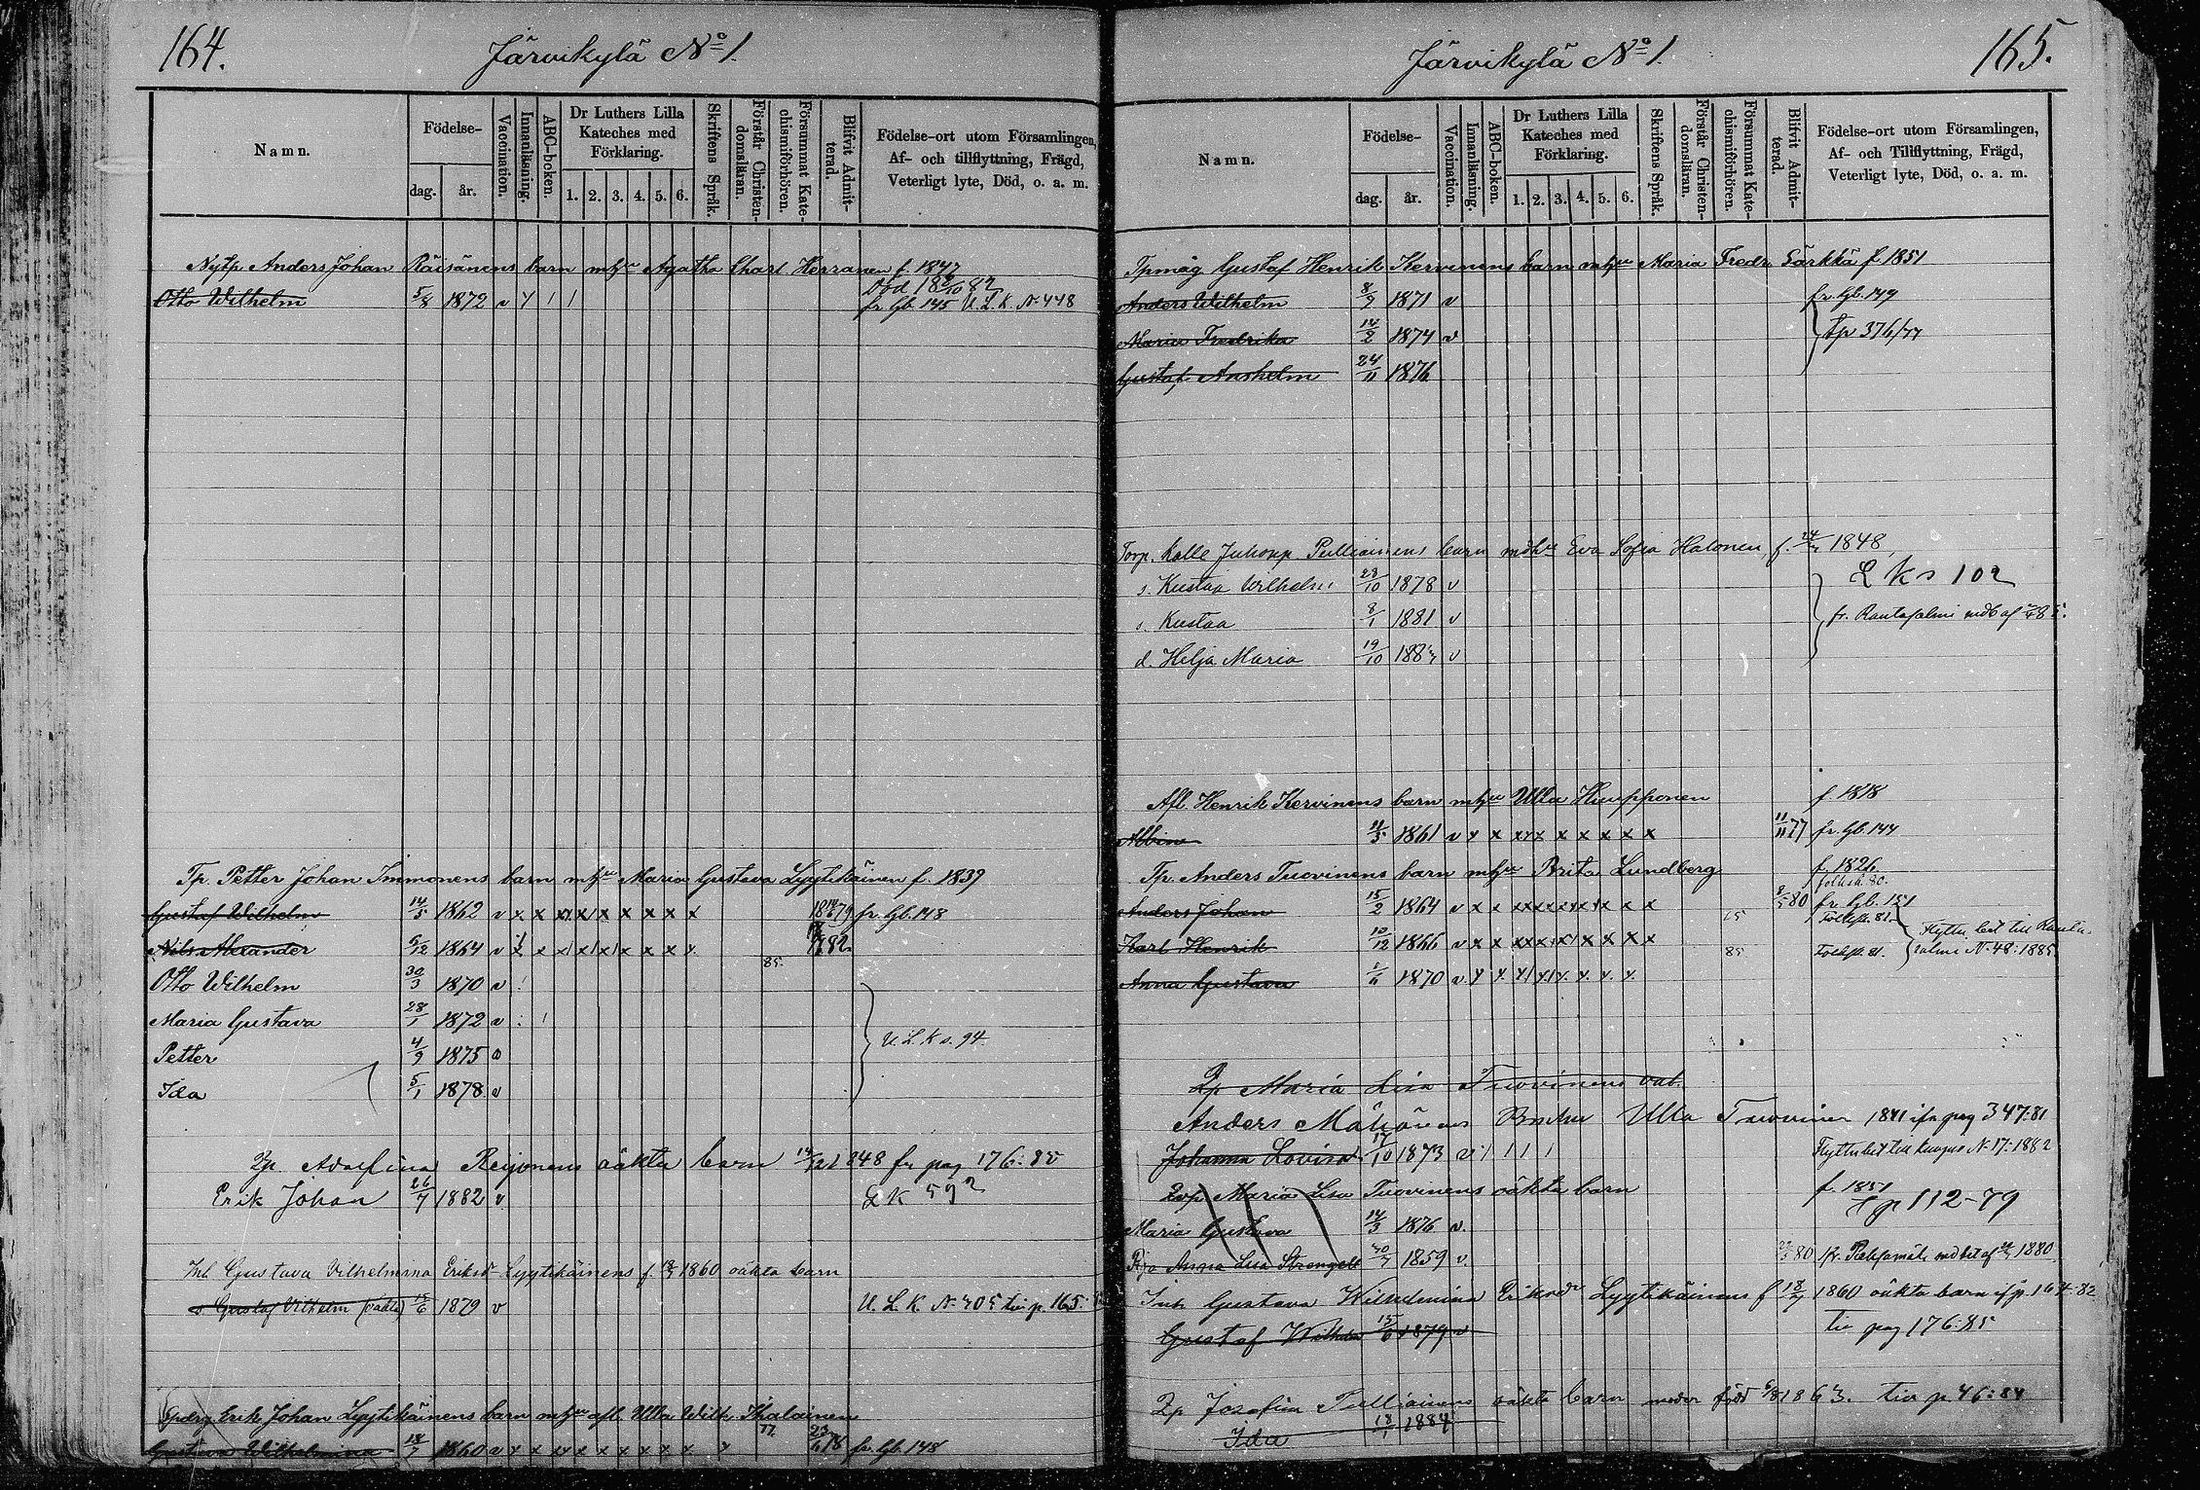 164.
Järvikylä No 1.
Namn.
Födelse-
dag.
år.
Vaccination.
Innanläsning.
ABC-boken.
Dr Luthers Lilla
Kateches med
Förklaring.
1. 2. 3. 4. 5. 6.
Skriftens Språk.
Förstår Christen-
domsläran.
Försummat Kate-
chismiförhören.
Blifvit Admit-
terad.
Födelse-ort utom Församlingen,
Af- och tillflyttning, Frägd,
Veterligt lyte, Död, o. a. m.
Nytp. Anders Johan Räisänens barn mhu Agatha Charl. Herranen f. 1847
Död 18 24/10 82
Otto Wilhelm 5/8 1872 v fr. Gb. 145 U.L.K. N. 448
Tp. Petter Johan Immonens barn mhu Maria Gustava Lyytikäinen f. 1839
Gustaf Wilhelm 14/5 1862 v x x x x x x x x x fr. Gb. 148
Nils Alexander 1864 v x x x x x x x x 82
85.
Otto Wilhelm 30/3 1870 v
Maria Gustava 28/1 1872 v
U.L.K. s. 94.
Petter 4/9 1875 v
Ida 5/1 1878 v
Zp. Adolfina Reijonens oäkta barn 1848 fr pag 176:85
Erik Johan 26/7 1882 v LK 592
Inh. Gustava Vilhelmina Eriksd. Lyytikäinens f. 18/7 1860 oäkta barn
s Gustaf Vilhelm (oäkta) 15/6 1879 v U.L.K. N. 405 till p. 165:
Erik Johan Lyytikäinens barn mhu afl. Ulla Wilh. Ihalainen
77.
Gustava Wilhelmina 18/7 1860 v x x x x x x x x x x 23/6 78 fr. Gb. 148
165.
Järvikylä No 1.
Namn.
Födelse-
dag.
år.
Vaccination.
Innanläsning.
ABC-boken.
Dr Luthers Lilla
Kateches med
Förklaring.
1. 2. 3. 4. 5. 6.
Skriftens Språk.
Förstår Christen-
domsläran.
Försummat Kate-
chismiförhören.
Blifvit Admit-
terad.
Födelse-ort utom Församlingen,
Af- och Tillflyttning, Frägd,
Veterligt lyte, Död, o. a. m.
Tpmåg Gustaf Henrik Kervinens barn mhu Maria Fredr. Särkkä f. 1851
Anders Wilhelm 8/9 1871 v fr. Gb. 149
Maria Fredrika 14/2 1874 v tp 376/77
Gustaf Anshelm 24/11 1876
Torp. Kalle Juhonp. Pulliainens barn mdhu Eva Sofia Halonen, f. 1848,
L K s 102
s. Kustaa Wilhelm 28/10 1878 v
s. Kustaa 8/1 1881 v fr. Rantasalmi mdb af
d. Helja Maria 19/10 1883 v
Afl. Henrik Kervinens barn mhu Ulla Humpponen f. 1818
Albin 11/3 1861 v x x x x x x x x x x 11/11 77 fr. Gb. 144
Tp. Anders Tuovinens barn mhu Brita Lundberg f. 1826
folksk. 80.
Anders Johan 15/2 1864 v x x x x x x x x x 80 fr. Gb. 151
Folksk. 81.
Karl Henrik 10/12 1866 v x x x x x x x x x 85 Folksk. 81.
Flyttn. bet till Ranta-
salmi N. 48: 1885.
Anna Gustava 1/6 1870 v
Zp Maria Lisa Tuovinens oäb.
Anders Ulla Tuovinen 1841 ifr pag 347:81
Johanna Lovisa 17/10 1873 v Flyttn bet till Kuopio N. 17: 1882
Maria Lisa Tuovinens oäkta barn f. 1851
tp 112-79
Maria Gustava 14/3 1876 v.
Anna Lisa Strengell 1859 v. 80 mdbet af 1880
Inh Gustava Wilhelmina Eriksdr Lyytikäinens f 18/7 1860 oäkta barn ifr p. 164-82
till pag 176:85
Gustaf Wilhelm 15/6 1879 v
Zp Josefina Pulliainens oäkta barn moder född 6/8 1863. till p. 46:84
Ida 1884